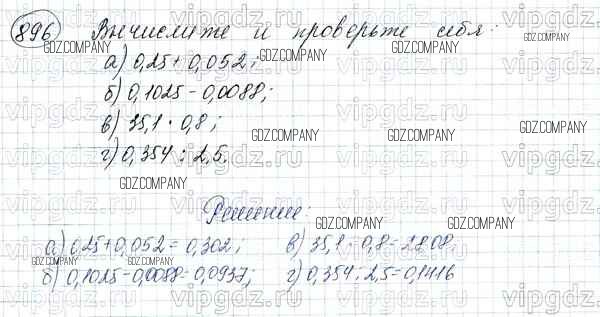 896 Вычислите и проверьте себя:
а) 0,25 + 0,052;
б) 0,1025 - 0,0088;
в) 35,1 · 0,8;
г) 0,354 : 2,5.
Решение:
а) 0,25+0,052 = 0,302; в) 35,1 · 0,8 = 28,08
б) 0,1025-0,0088=0,0937; г) 0,354:2,5=0,1416
GDZ.COMPANY
vipgdz.ru